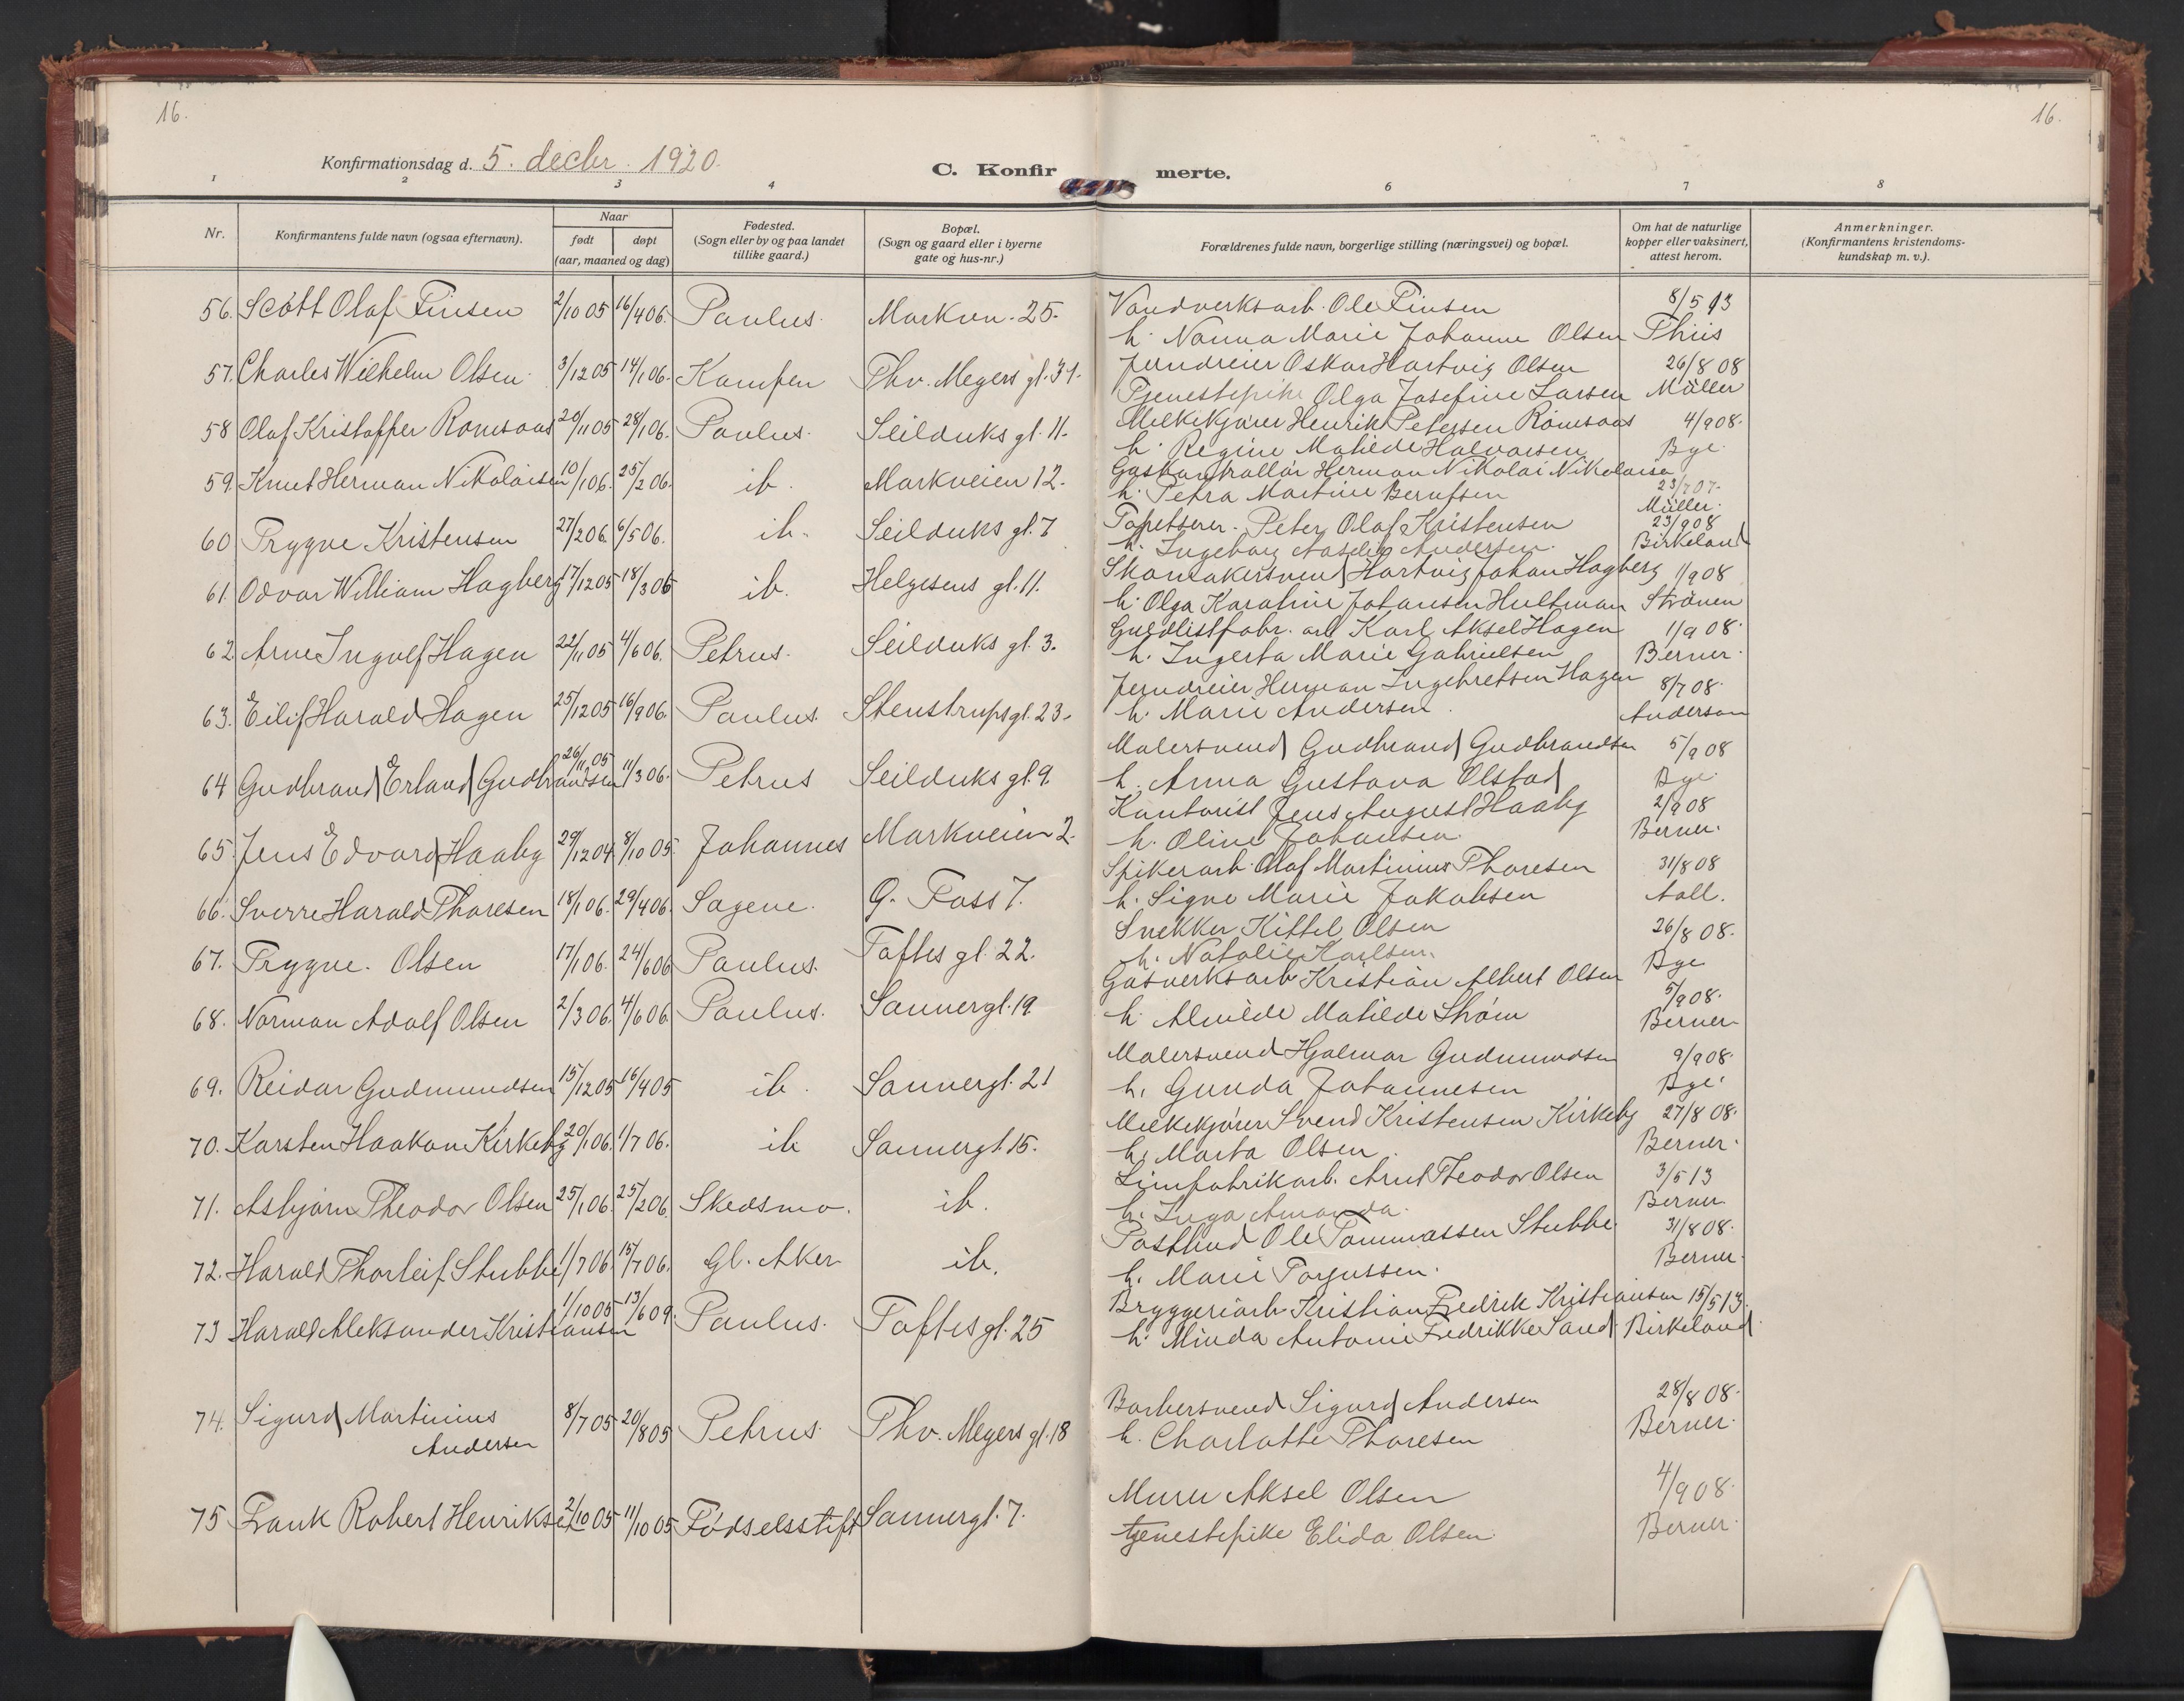 16.
16.
Konfirmationsdag d. 5. decbr. 1920.
C. Konfirmerte.
1 2 3 4 6 7 8
Nr.
Konfirmantens fulde navn (ogsaa efternavn).
Naar
født døpt
(aar, maaned og dag)
Fødested.
(Sogn eller by og paa landet
tillike gaard.)
Bopæl.
(Sogn og gaard eller i byerne
gate og hus-nr.)
Forældrenes fulde navn, borgerlige stilling (næringsvei) og bopæl.
Om hat de naturlige
kopper eller vaksinert,
attest herom.
Anmerkninger.
(Konfirmantens kristendoms-
kundskap m. v.).
56. Scott Olaf Finsen 2/10 05 16/4 06. Paulus. Markvn. 25. Vandverksarb. Ole Finsen 8/5 13
h. Nanna Marie Johanne Olsen Thiis
57. Charles Wilhelm Olsen 3/12 05 14/1 06. Kampen Thv. Meyers gt. 31. Jerndreier Oskar Hartvig Olsen 26/8 08
Tjenestepike Olga Josefine Larsen Müller
58 Olaf Kristoffer Romsaas 20/11 05 28/1 06. Paulus. Seilduks gt. 11. Melkekjører Henrik Petersen Romsaas 4/9 08.
h. Regine Matilde Halvorsen Bye.
59. Knut Herman Nikolaisen 10/1 06. 25/2 06. ib. Markveien 12. Gaskontrollör Herman Nikolai Nikolaisen 23/7 07.
h. Petra Martine Berntsen Müller.
60 Trygve Kristensen 27/2 06. 6/5 06. ib. Seilduks gt. 7 Tapetserer. Peter Olaf Kristensen 23/9 08
h. Ingeborg Andersen. Birkeland
61. Odvar William Hagberg 17/12 05 18/3 06 ib. Helgesens gt. 11. Skomakersvend Hartvig Johan Hagberg 1/9 08
h. Olga Karoline Johansen Hultman Strömen
62. Arne Ingolf Hagen 22/11 05 4/6 06. Petrus. Seilduks gt. 3. Guldlistfabr. arb Karl Aksel Hagen 1/9 08.
h. Ingerta Marie Gabrielsen Berner.
63. Eilif Harald Hagen 25/12 05 16/9 06. Paulus. Stenstrupsgt. 23. Jerndreier Herman Ingebretsen Hagen 8/7 08.
h. Marie Andersen. Anderson
64 Gudbrand Erland Gudbrandsen 26/11 05 11/3 06. Petrus Seilduks gt. 9. Malersvend Gudbrand Gudbrandsen 5/9 08
h. Anna Gustava Olstad Bye.
65. Jens Edvard Haaby 29/12 04. 8/10 05. Johannes Markveien 2. Kontorist Jens August Haaby 2/9 08
h. Oline Johansen. Berner.
66. Sverre Harald Thoresen 18/1 06. 29/4 06. Sagene. G. Foss 7. Spikerarb. Olaf Martinius Thoresen 31/8 08
h. Signe Marie Jakobsen Aall.
67. Trygve. Olsen 17/1 06. 24/6 06 Paulus. Toftes gt. 22. Snekker Kittel Olsen 26/8 08.
h. Natalie Karlsen. Bye
68. Norman Adolf Olsen 2/3 06. 4/6 06. Paulus. Sannergt. 19. Gasverksarb Kristian Albert Olsen 5/9 08.
h. Alvilde Matilde Strøm Berner
69. Reidar Gudmundsen 15/12 05 16/4 05 ib. Sannergt. 21 Malersvend Hjalmar Gudmundsen 9/9 08.
h. Gunda Johannesen Bye.
70. Karsten Haakon Kirkeby 20/1 06. 1/7 06. ib Sannergt. 15. Melkekjører Svend Kristensen Kirkeby 27/8 08.
h. Marta Olsen. Berner.
71. Asbjørn Theodor Olsen 25/1 06. 25/2 06. Skedsmo. ib. Limfabrikarb. Arnt Theodor Olsen 3/5 13
h. Inga Amanda. Berner
72. Harald Thorleif Stubbe 1/7 06. 15/7 06. Gl. Aker ib. Postbud Ole Tommassen Stubbe. 31/8 08.
h. Marie Torjussen. Berner.
73 Harald Aleksander Kristiansen 1/10 05 13/6 09. Paulus. Toftes gt. 25 Bryggeriarb Kristian Fredrik Kristiansen 15/5 13.
h. Minda Antonie Fredrikke Sand Birkeland.
74. Sigurd Martinius 8/7 05 20/8 05 Petrus. Thv. Meyers gt. 18 Barbersvend Sigurd Andersen 28/8 08.
Andersen h. Charlotte Thoresen Berner.
75 Frank Robert Henriksen 2/10 05 11/10 05 Fødselsstift Sannergt. 7. Murer Aksel Olsen 4/9 08.
tjenestepike Elida Olsen. Berner.